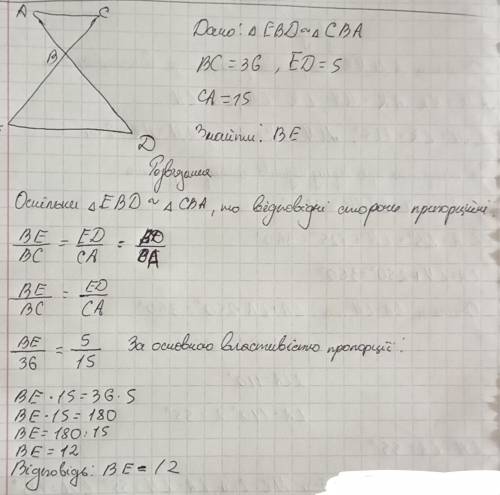 A C
Дано: △ EBD ~ △ CBA
BC = 36 , ED = 5
B
CA = 15
Знайти: BE
E
D
Розв'язання
Оскільки △ EBD ~ △ CBA, то відповідні сторони пропорційні
BE/BC = ED/CA = BD/BA
BE/BC = ED/CA
BE/36 = 5/15 За основною властивістю пропорції:
BE · 15 = 36 · 5
BE · 15 = 180
BE = 180 : 15
BE = 12
Відповідь: BE = 12